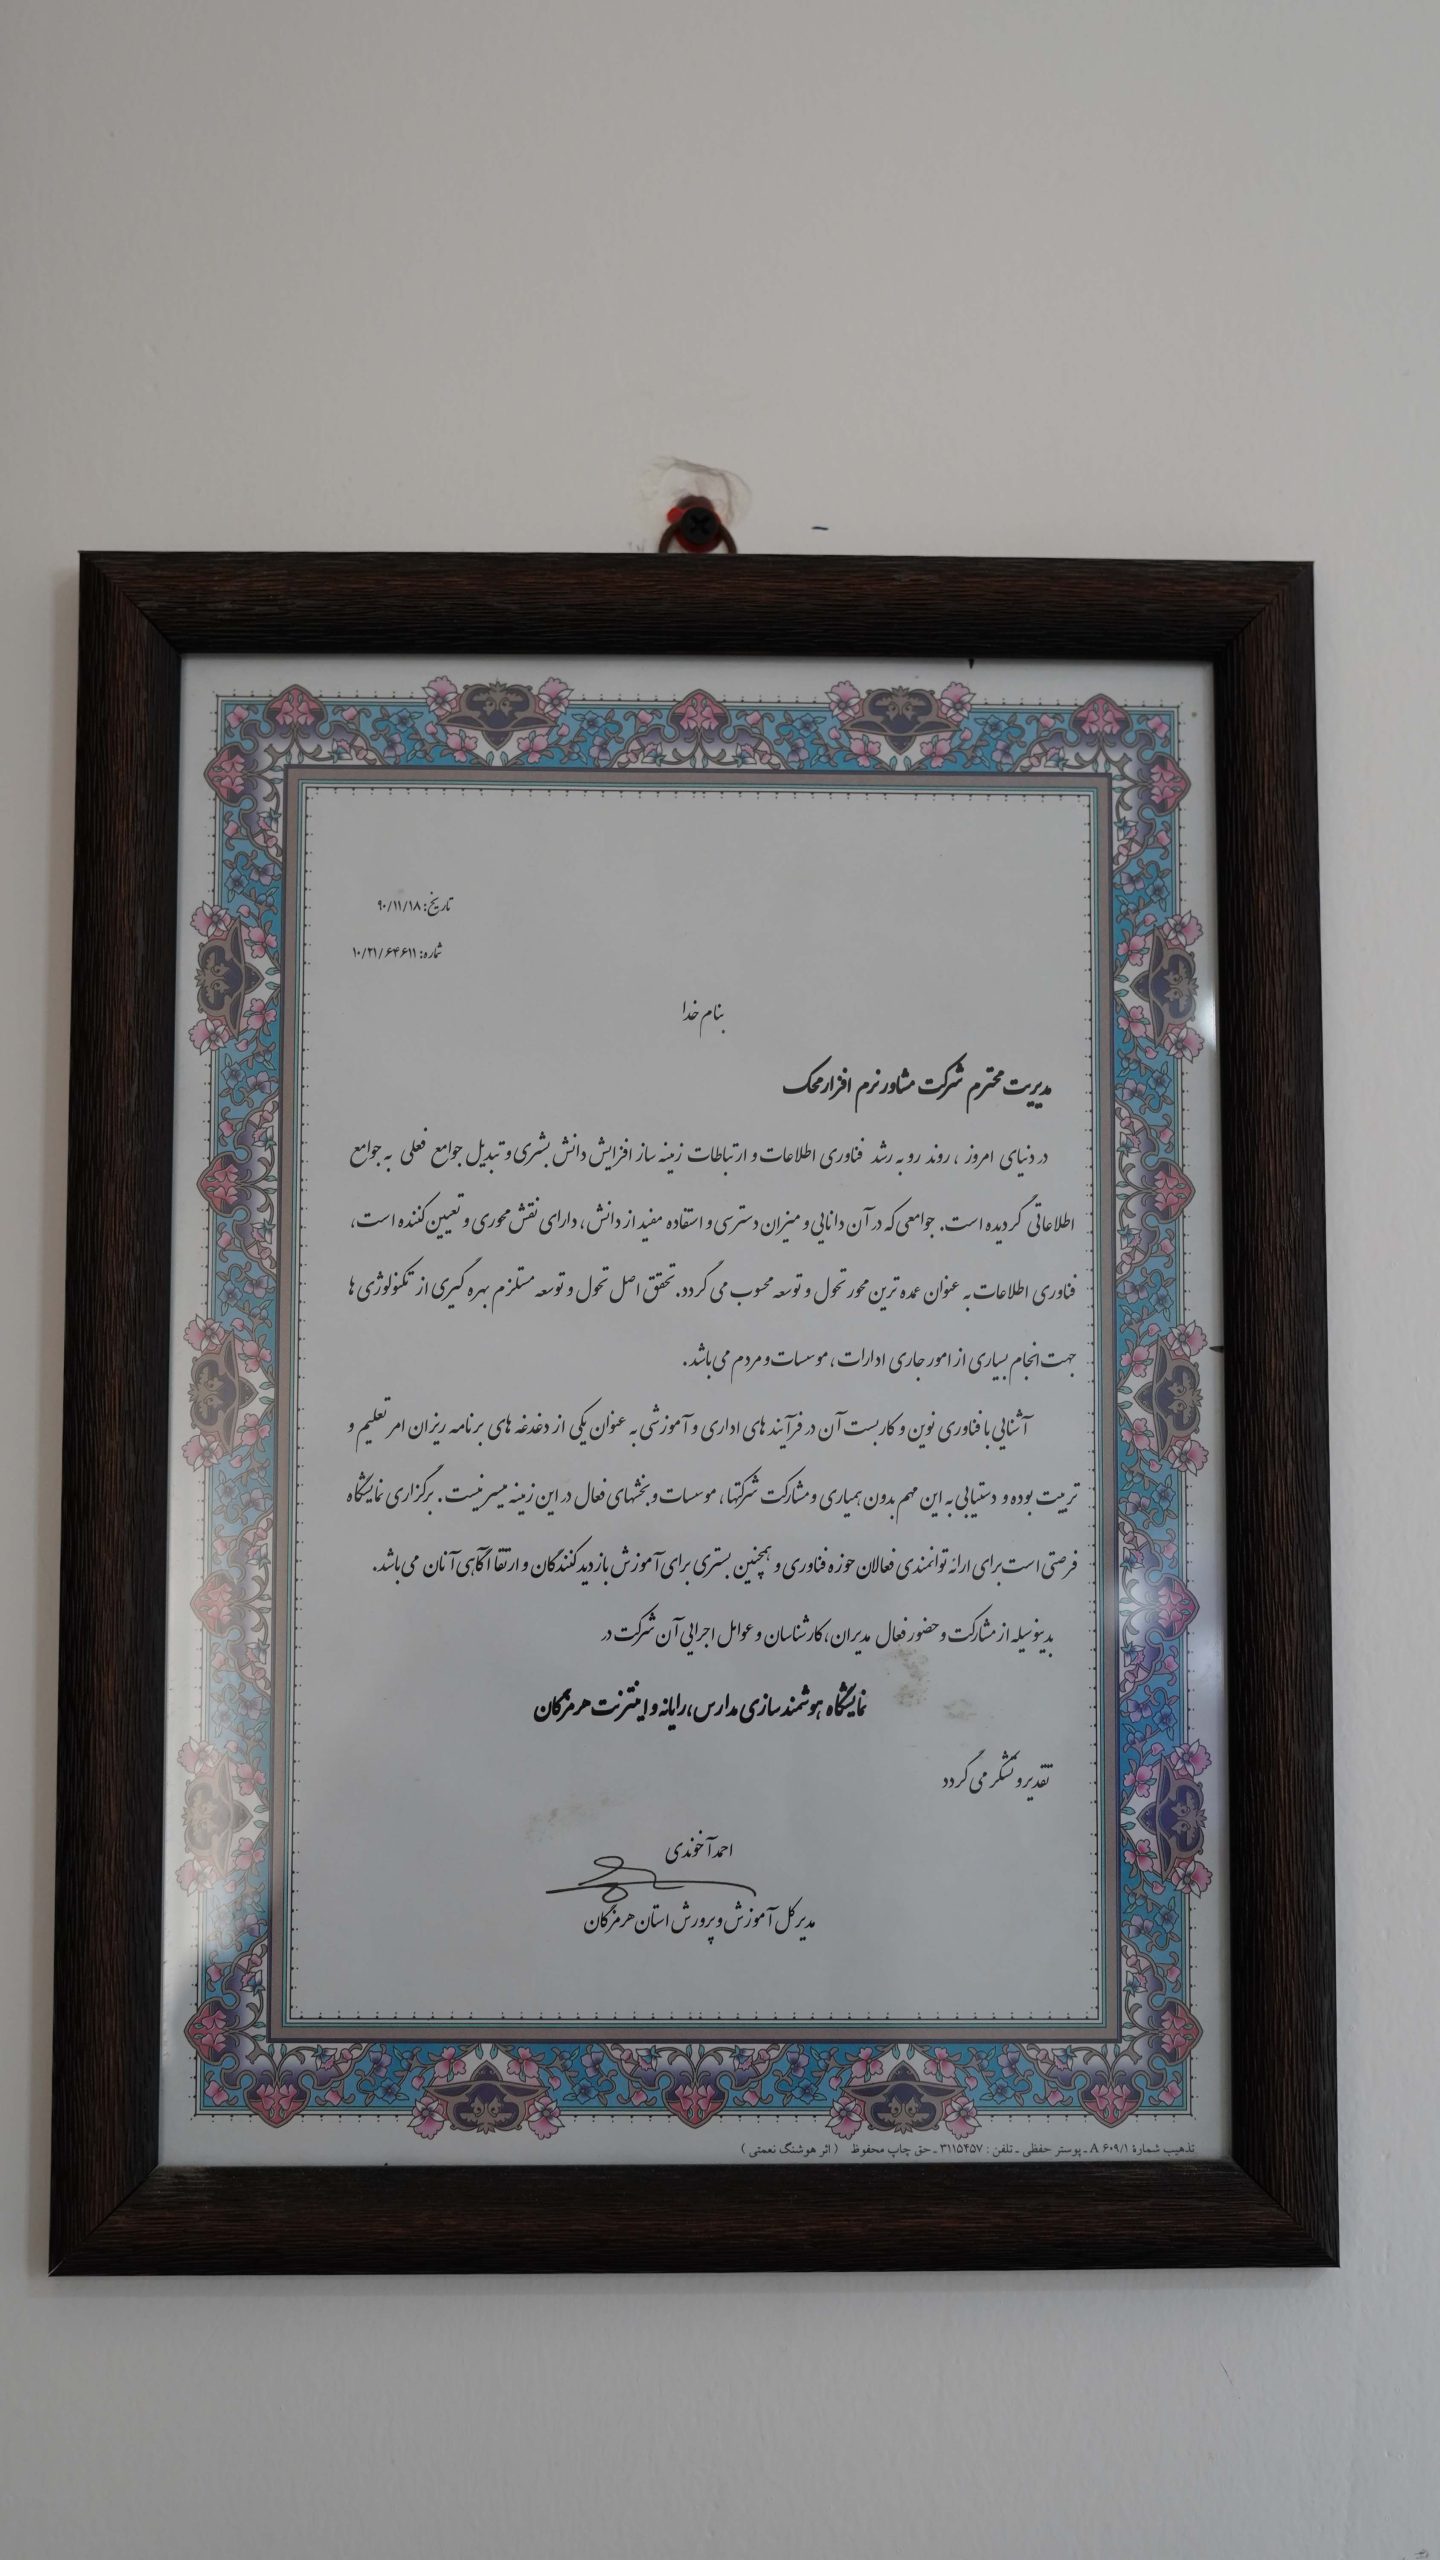 تاریخ: ۹۰/۱۱/۱۸
شماره: ۱۰/۲۱/۶۴۶۱۱
بنام خدا
مدیریت محترم شرکت مشاور نرم افزار محک
در دنیای امروز ، روند رو به رشد فناوری اطلاعات و ارتباطات زمینه ساز افزایش دانش بشری و تبدیل جوامع فعلی به جوامع
اطلاعاتی گردیده است. جوامعی که در آن دانایی و میزان دسترسی و استفاده مفید از دانش، دارای نقش محوری و تعیین کننده است،
فناوری اطلاعات به عنوان عمده ترین محور تحول و توسعه محسوب می گردد. تحقق اصل تحول و توسعه مستلزم بهره گیری از تکنولوژی ها
جهت انجام بسیاری از امور جاری ادارات، موسسات و مردم می باشد.
آشنایی با فناوری نوین و کاربست آن در فرآیند های اداری و آموزشی به عنوان یکی از دغدغه های برنامه ریزان امر تعلیم و
تربیت بوده و دستیابی به این مهم بدون همیاری و مشارکت شرکتها، موسسات و بخشهای فعال در این زمینه میسر نیست. برگزاری نمایشگاه
فرصتی است برای ارائه توانمندی فعالان حوزه فناوری و همچنین بستری برای آموزش بازدید کنندگان و ارتقا آگاهی آنان می باشد.
بدینوسیله از مشارکت و حضور فعال مدیران، کارشناسان و عوامل اجرایی آن شرکت در
نمایشگاه هوشمند سازی مدارس، رایانه و اینترنت هرمزگان
تقدیر و تشکر می گردد
احمد آخوندی
مدیر کل آموزش و پرورش استان هرمزگان
تذهیب شمارهٔ A ۶۰۹/۱ ـ پوستر حفظی ـ تلفن : ۳۱۱۵۴۵۷ ـ حق چاپ محفوظ ( اثر هوشنگ نعمتی )